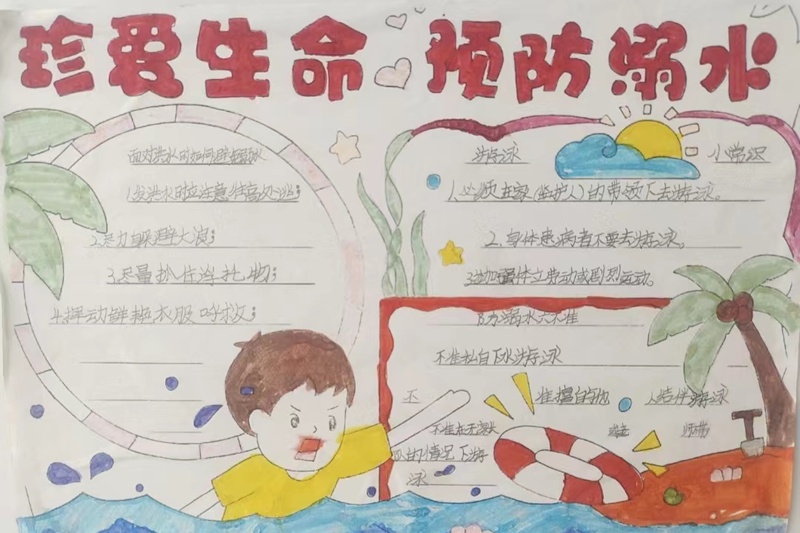 珍爱生命 预防溺水
面对洪水时如何避免溺水
1.发洪水时应注意往高处逃;
2.尽力躲避大浪;
3.尽量抓住漂浮物;
4.挥动鲜艳衣服呼救;
游泳 小常识
1.必须在家(监护人)的带领下去游泳。
2.身体患病者不要去游泳。
3.参加强体立劳动或剧烈运动。
防溺水六不准
不准私自下水游泳
不 准擅自与他 人结伴游泳
不准在无家长 或 师带
的情况下游
泳